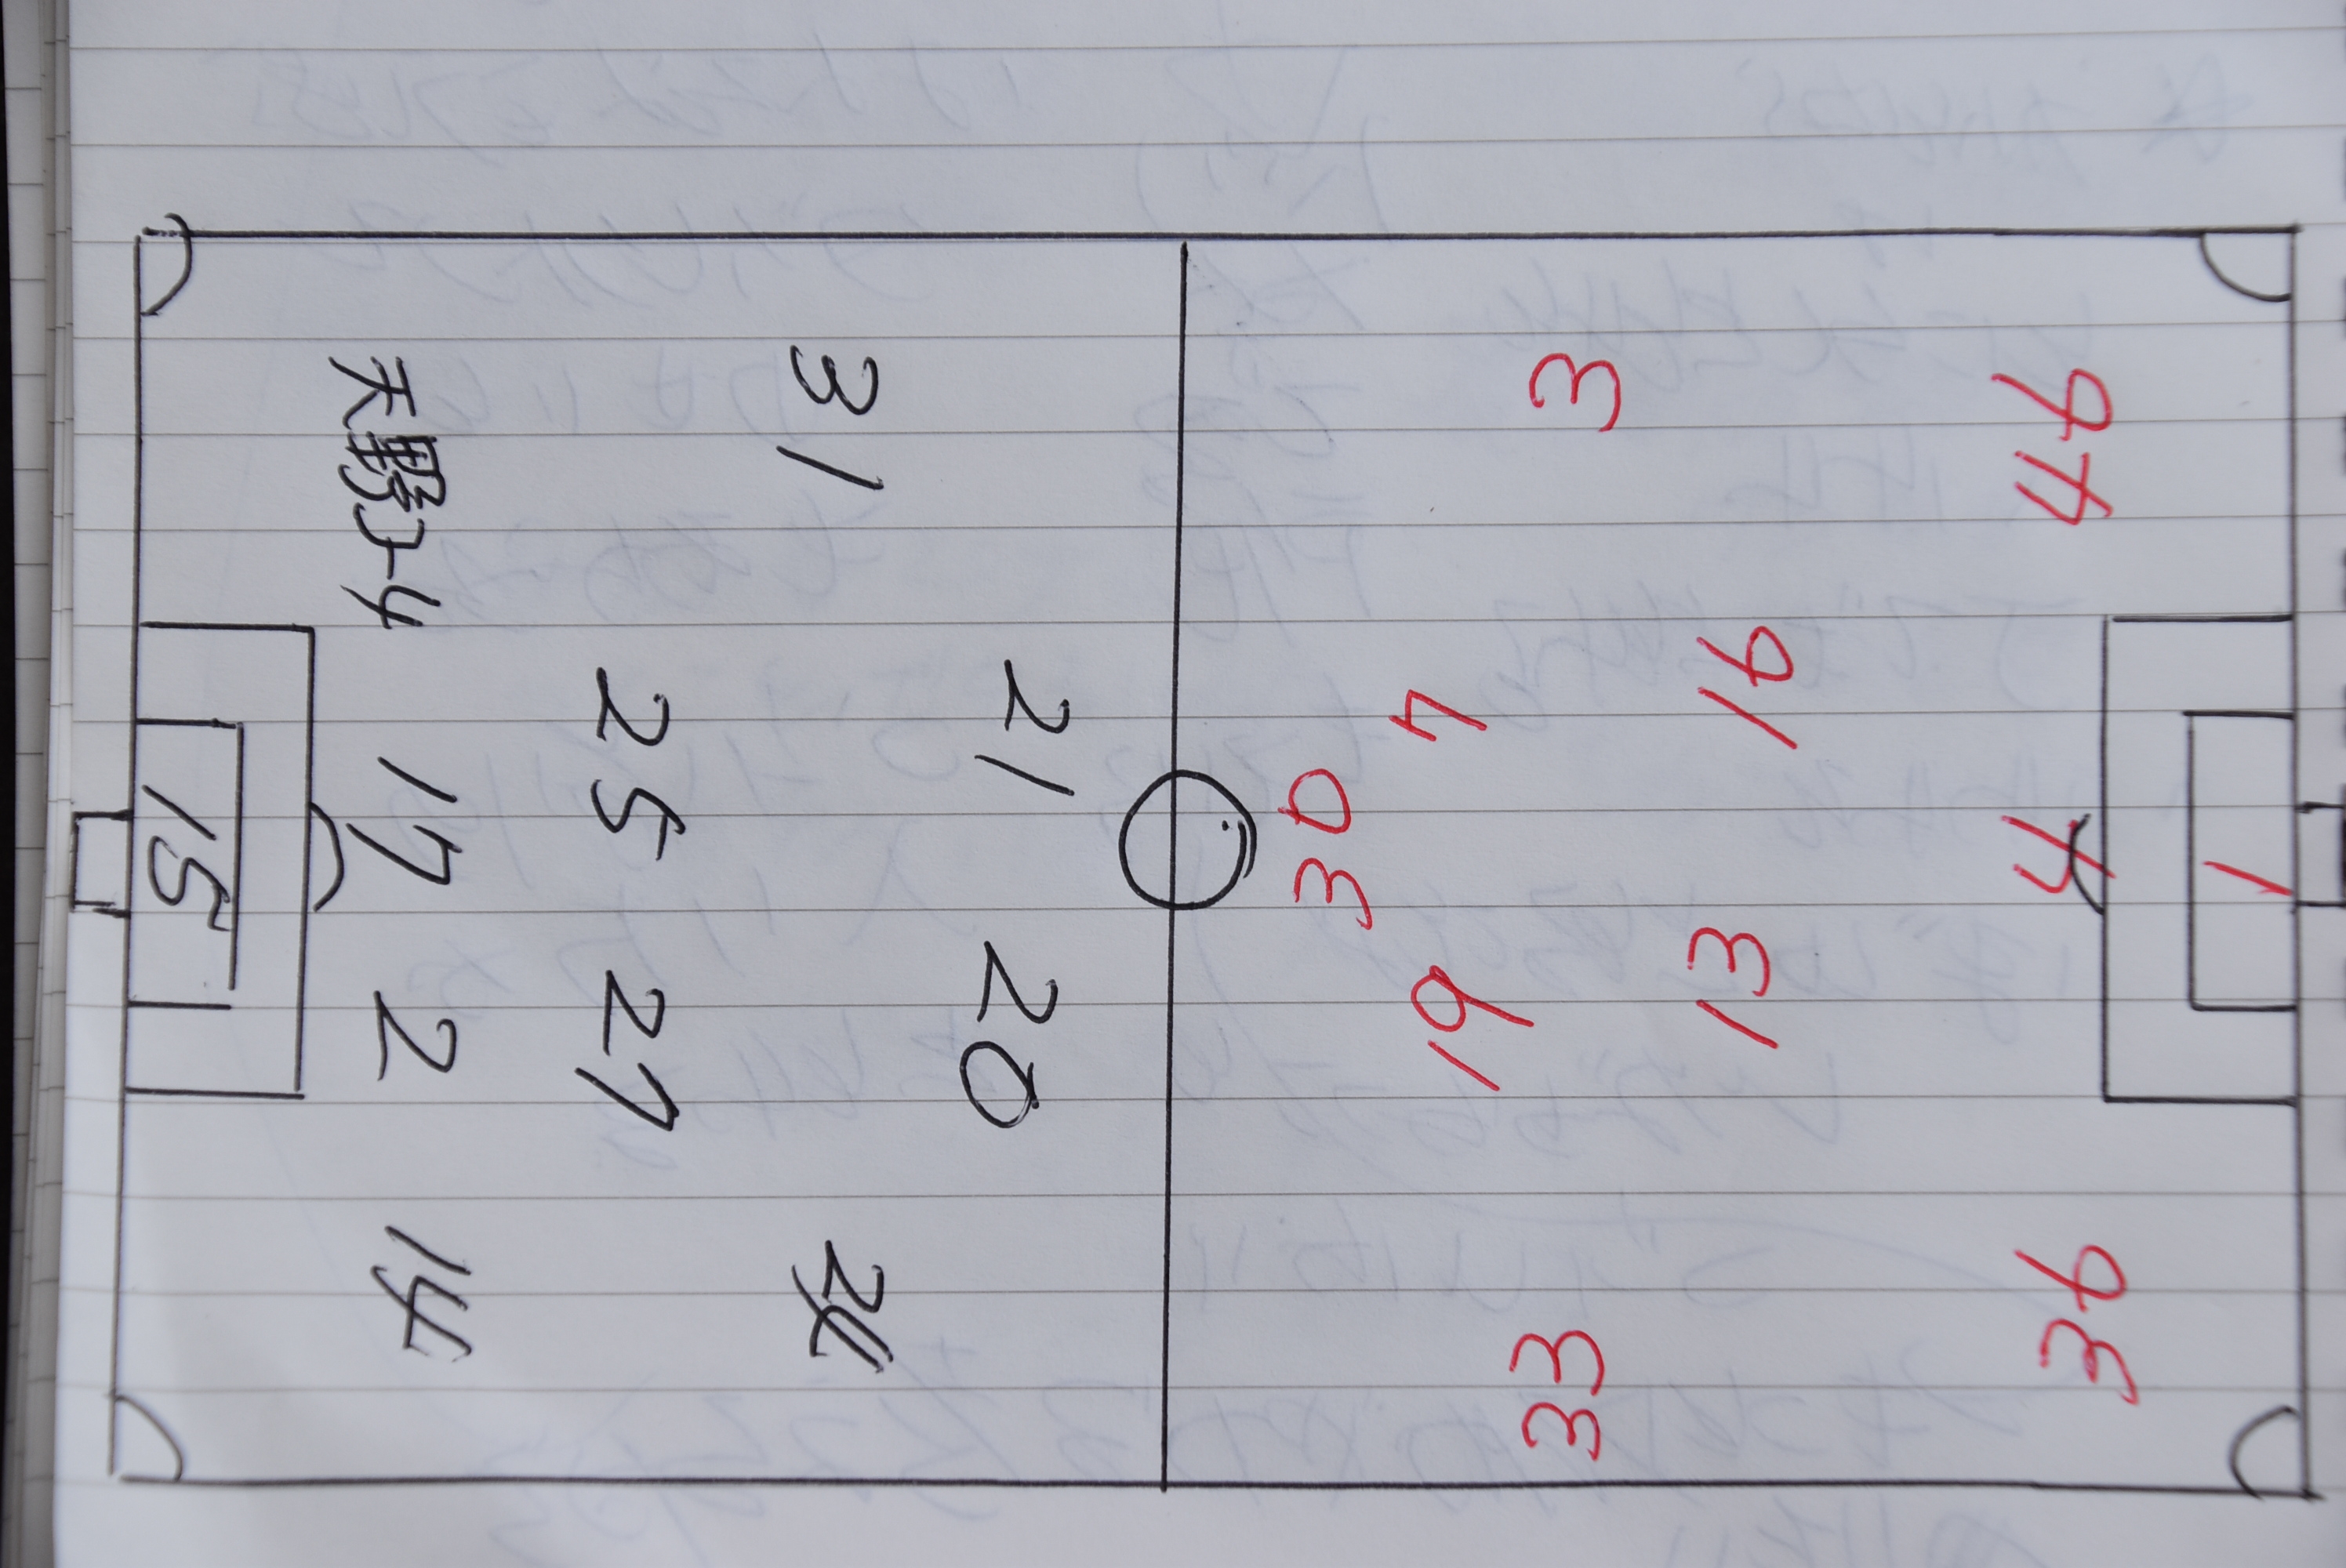 21 20
31 24
25 27
天野-4 17 2 14
15
30
19 7
33 3
13 16
36 4 46
1